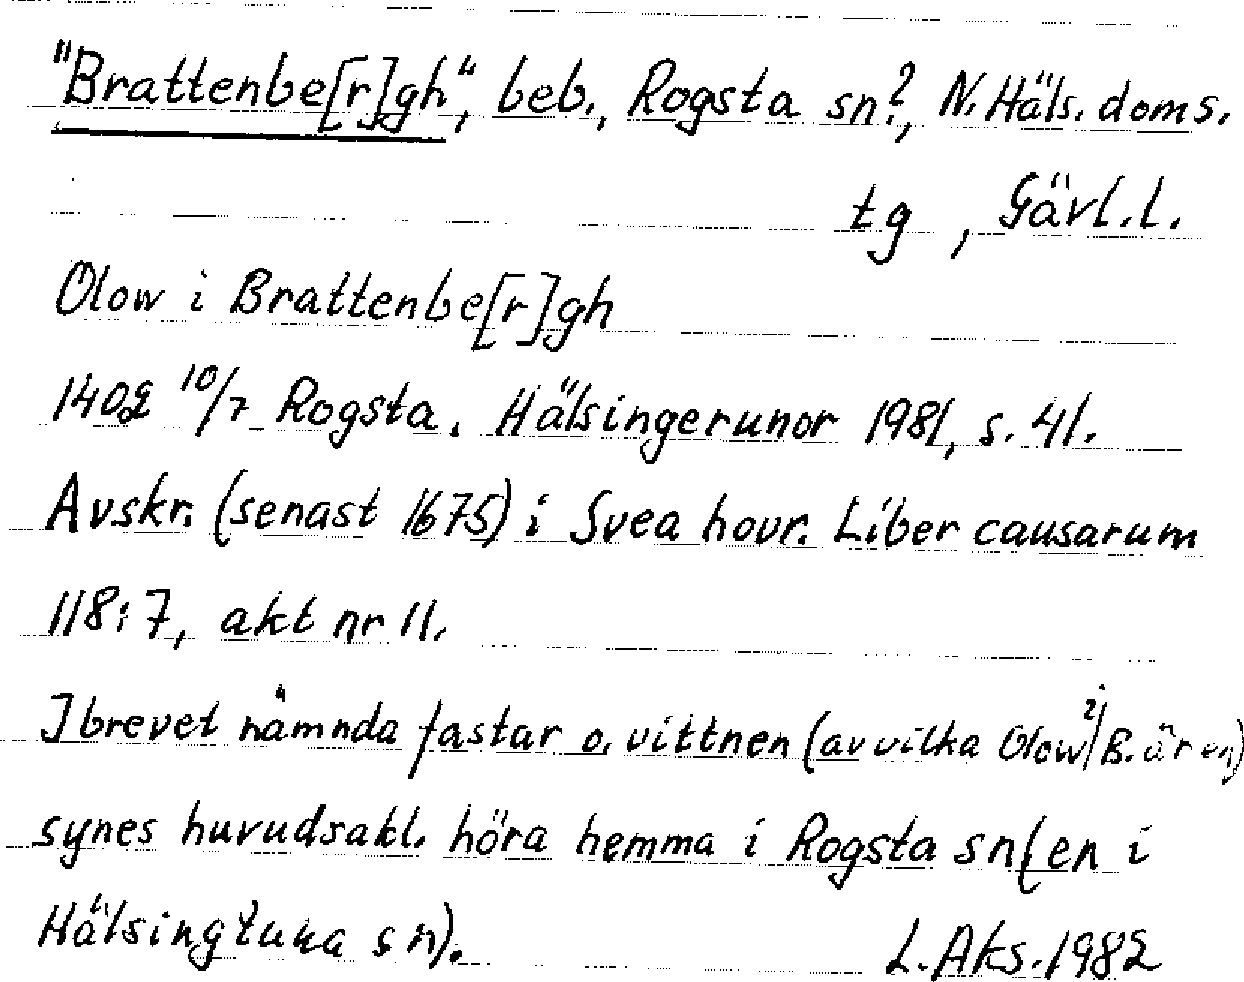 "Brattenbe[r]gh", beb., Rogsta sn?, N. Häls. doms.
tg , Gävl. l.
Olow i Brattenbe[r]gh
1402 10/7 Rogsta. Hälsingerunor 1981, s. 41.
Avskr. (senast 1675) i Svea hovr. Liber causarum
118:7, akt nr 11.
I brevet nämnda fastar o. vittnen (av vilka Olow i B. är en)
synes huvudsakl. höra hemma i Rogsta sn (en i
Hälsingtuna sn). L. Aks. 1982